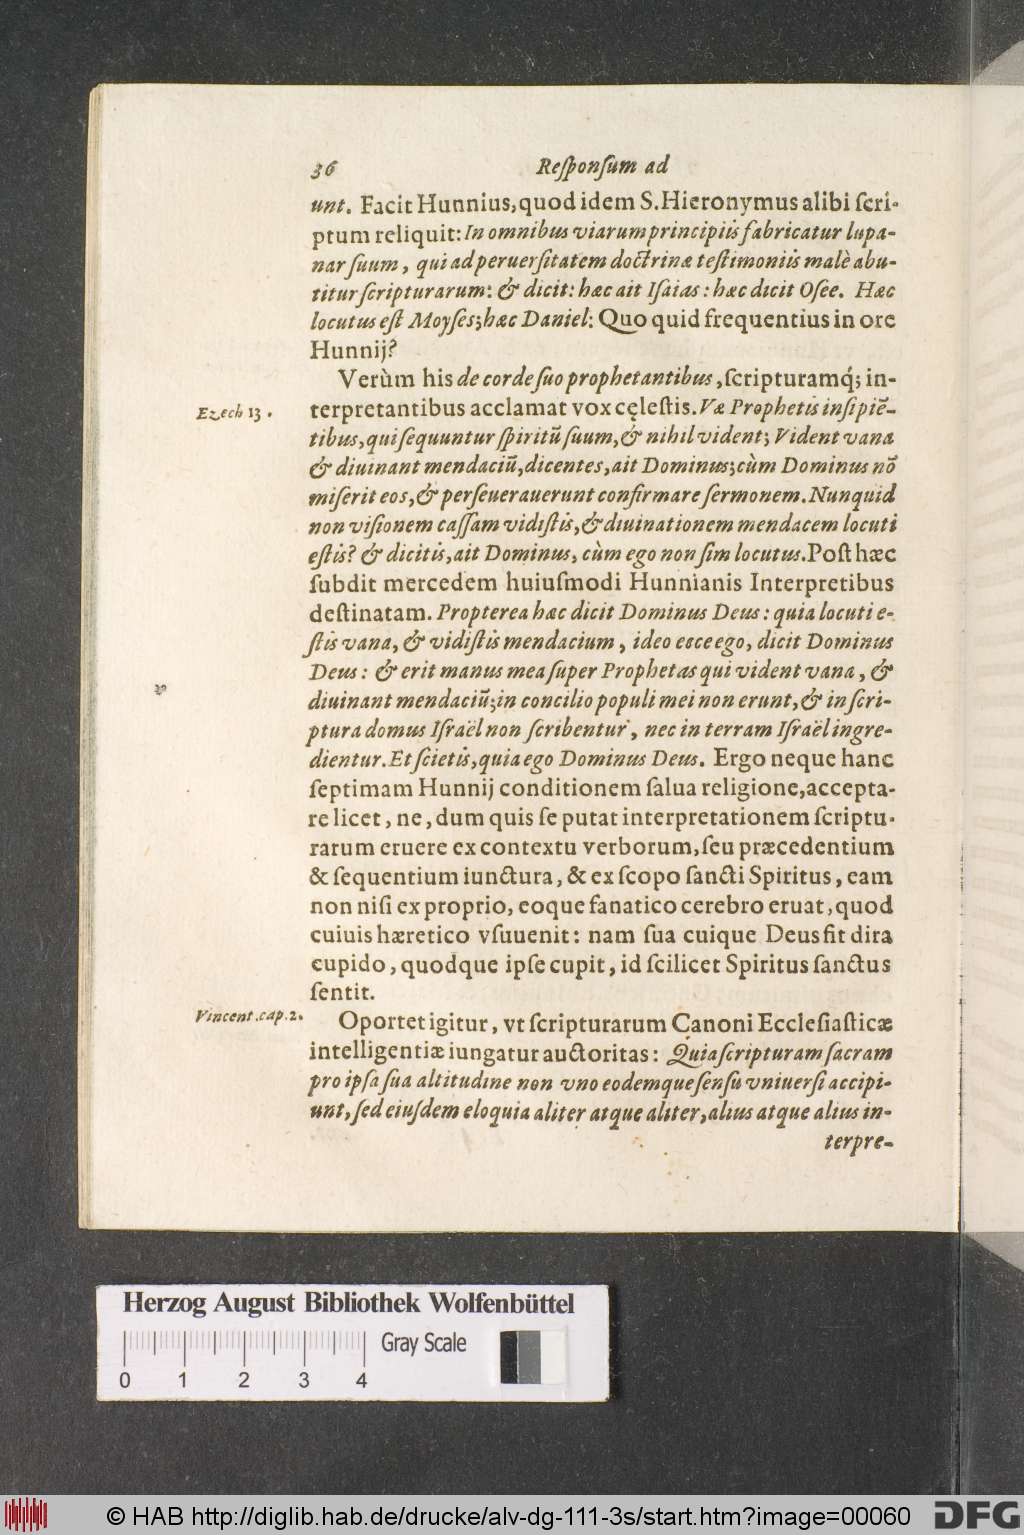 36 Reſponſum ad
unt. Facit Hunnius, quod idem S. Hieronymus alibi ſcri-
ptum reliquit: In omnibus viarum principiis fabricatur lupa-
nar ſuum, qui ad peruerſitatem doctrinæ teſtimoniis malè abu-
titur ſcripturarum: & dicit: hæc ait Iſaias: hæc dicit Oſee. Hæc
locutus eſt Moyſes; hæc Daniel: Quo quid frequentius in ore
Hunnij?
Verùm his de corde ſuo prophetantibus, ſcripturamq́; in-
Ezech 13. terpretantibus acclamat vox cęleſtis. Væ Prophetis inſipiẽ-
tibus, qui ſequuntur ſpiritũ ſuum, & nihil vident; Vident vana
& diuinant mendaciũ, dicentes, ait Dominus; cùm Dominus nõ
miſerit eos, & perſeuerauerunt confirmare ſermonem. Nunquid
non viſionem caſſam vidiſtis, & diuinationem mendacem locuti
eſtis? & dicitis, ait Dominus, cùm ego non ſim locutus. Poſt hæc
ſubdit mercedem huiuſmodi Hunnianis Interpretibus
deſtinatam. Propterea hæc dicit Dominus Deus: quia locuti e-
ſtis vana, & vidiſtis mendacium, ideo ecce ego, dicit Dominus
Deus: & erit manus mea ſuper Prophetas qui vident vana, &
diuinant mendaciũ; in concilio populi mei non erunt, & in ſcri-
ptura domus Iſraël non ſcribentur, nec in terram Iſraël ingre-
dientur. Et ſcietis, quia ego Dominus Deus. Ergo neque hanc
ſeptimam Hunnij conditionem ſalua religione, accepta-
re licet, ne, dum quis ſe putat interpretationem ſcriptu-
rarum eruere ex contextu verborum, ſeu præcedentium
& ſequentium iunctura, & ex ſcopo ſancti Spiritus, eam
non niſi ex proprio, eoque fanatico cerebro eruat, quod
cuiuis hæretico vſuuenit: nam ſua cuique Deus fit dira
cupido, quodque ipſe cupit, id ſcilicet Spiritus ſanctus
ſentit.
Vincent. cap. 2. Oportet igitur, vt ſcripturarum Canoni Eccleſiaſticæ
intelligentiæ iungatur auctoritas: Quia ſcripturam ſacram
pro ipſa ſua altitudine non vno eodemque ſenſu vniuerſi accipi-
unt, ſed eiuſdem eloquia aliter atque aliter, alius atque alius in-
terpre-
Herzog August Bibliothek Wolfenbüttel
Gray Scale
0 1 2 3 4
© HAB http://diglib.hab.de/drucke/alv-dg-111-3s/start.htm?image=00060
DFG